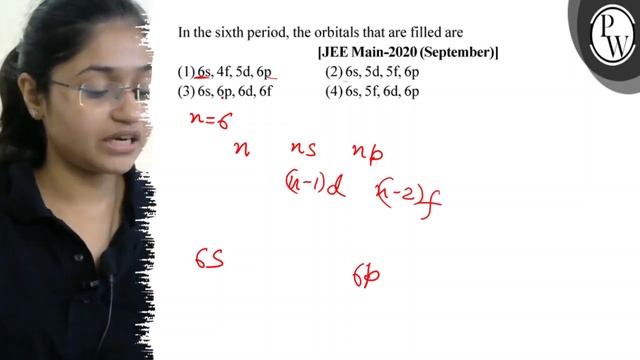 In the sixth period, the orbitals that are filled are
[JEE Main-2020 (September)]
(1) 6s, 4f, 5d, 6p (2) 6s, 5d, 5f, 6p
(3) 6s, 6p, 6d, 6f (4) 6s, 5f, 6d, 6p
n=6
n ns np
(n-1)d (n-2)f
6s
6p
P
W